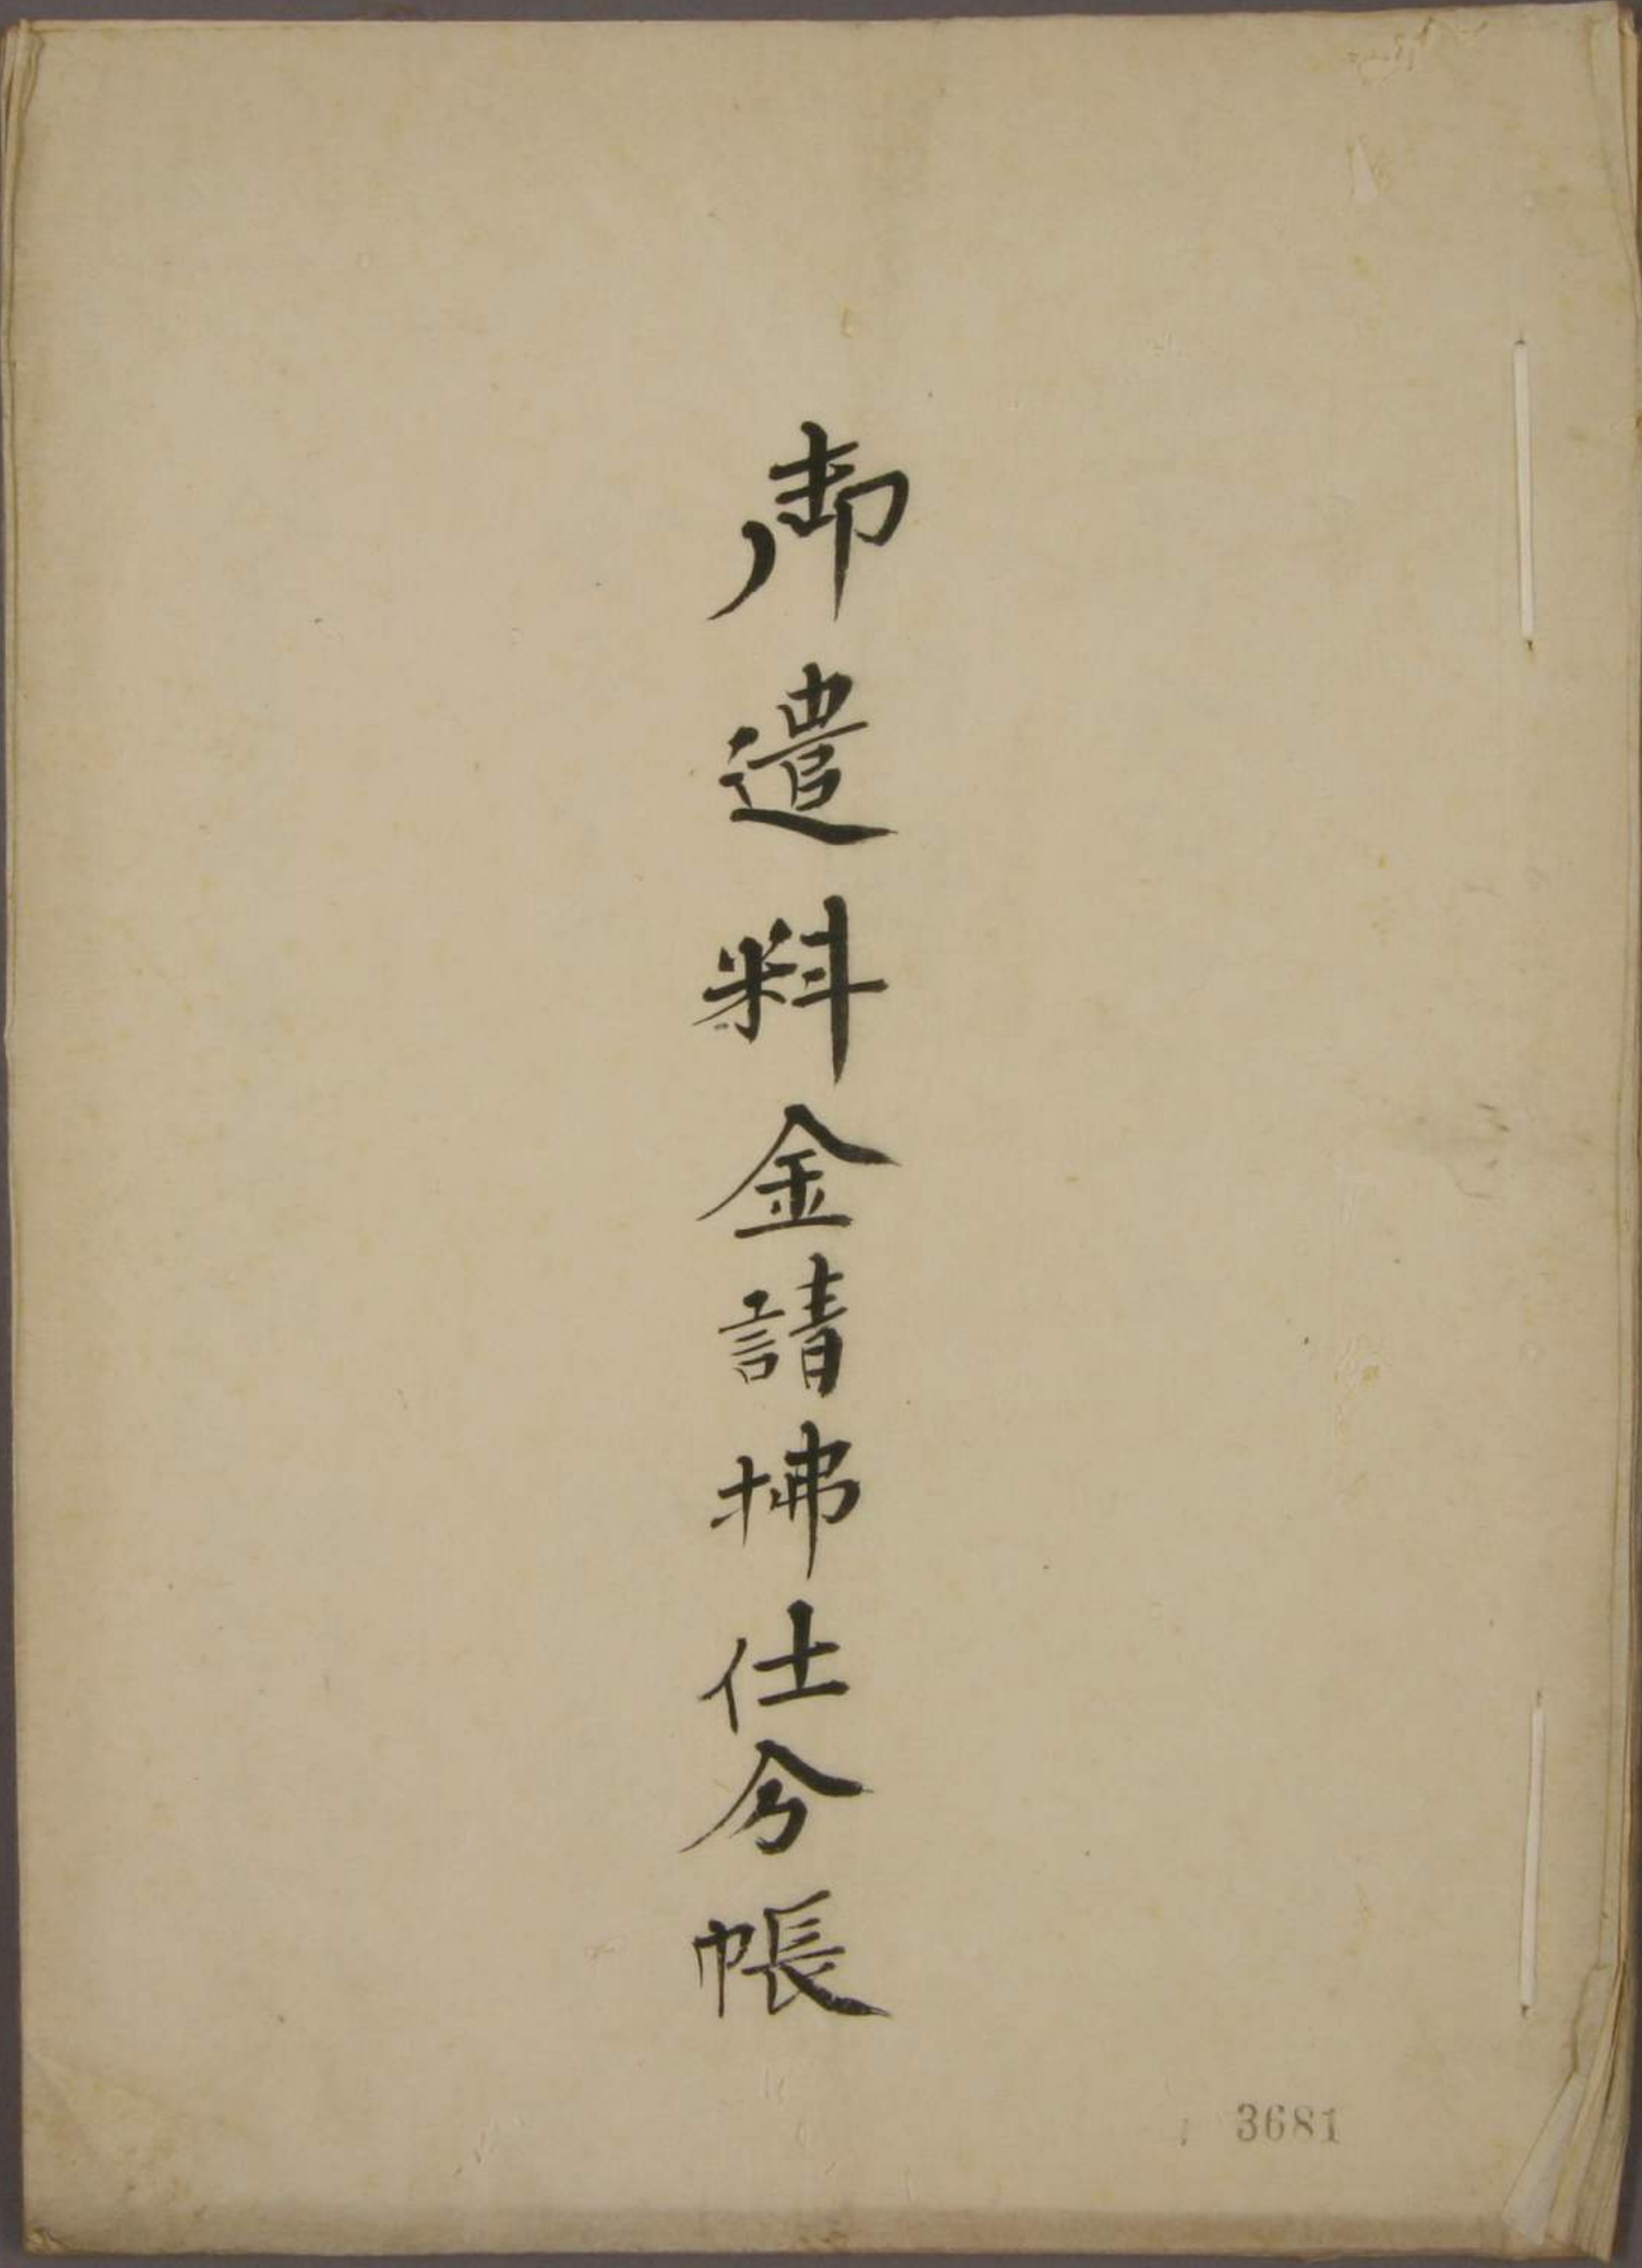 御遣料金請拂仕分帳
3681